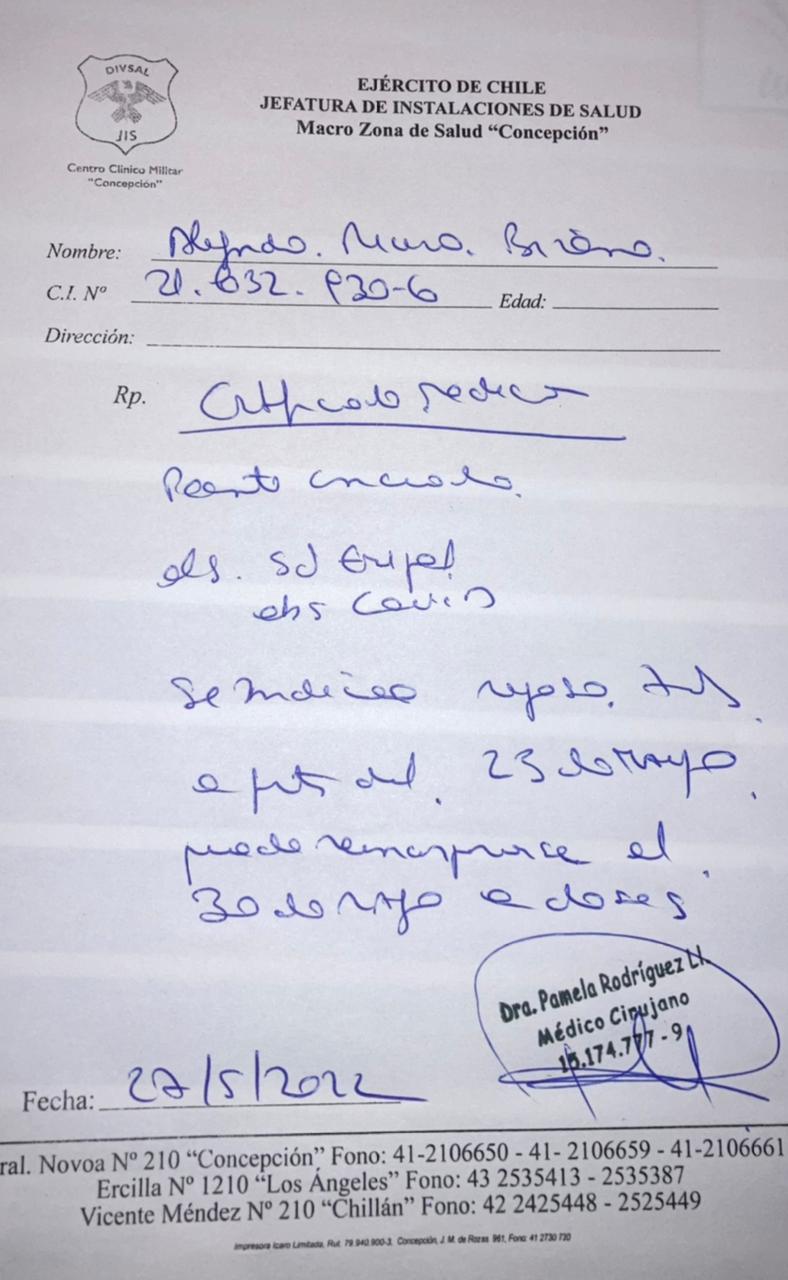 DIVSAL
JIS
Centro Clínico Militar
"Concepción"
EJÉRCITO DE CHILE
JEFATURA DE INSTALACIONES DE SALUD
Macro Zona de Salud "Concepción"
Nombre:
C.I. Nº 21.632.930-6 Edad:
Dirección:
Rp. Certificado Medico
obs Covid
Se indica reposo
a partir del. 23 de Mayo.
puede reincorporarse el
30 de Mayo a clases
Dra. Pamela Rodríguez Ll.
Médico Cirujano
15.174.777-9
Fecha: 27/5/2022
ral. Novoa Nº 210 "Concepción" Fono: 41-2106650 - 41- 2106659 - 41-2106661
Ercilla Nº 1210 "Los Ángeles" Fono: 43 2535413 - 2535387
Vicente Méndez Nº 210 "Chillán" Fono: 42 2425448 - 2525449
Impresora Icaro Limitada, Rut: 79.940.900-3, Concepción, J. M. de Rozas 961, Fono: 41 2730 720